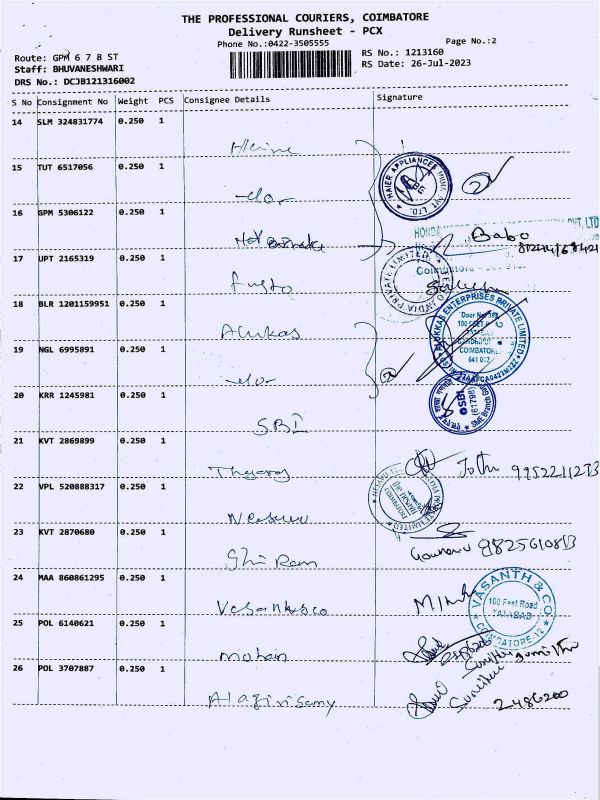 THE PROFESSIONAL COURIERS, COIMBATORE
Delivery Runsheet - PCX
Phone No.:0422-3505555
Page No.:2
Route: GPM 6 7 8 ST
RS No.: 1213160
Staff: BHUVANESHWARI
RS Date: 26-Jul-2023
DRS No.: DCJB121316002
S No Consignment No Weight PCS Consignee Details Signature
14 SLM 324831774 0.250 1
15 TUT 6517056 0.250 1
HAIER APPLIANCES PVT. LTD.
-do-
16 GPM 5306122 0.250 1
PVT. LTD
Babu
17 UPT 2165319 0.250 1
PRIVATE LIMITED
Coimbatore
18 BLR 1201159951 0.250 1
ALUKKAS ENTERPRISES PRIVATE LIMITED
Door No
100 FEET ROAD
COIMBATORE
641 012
Alukas
19 NGL 6995891 0.250 1
-do-
20 KRR 1245981 0.250 1
SBI
SME Branch
SBI
21 KVT 2869899 0.250 1
Jothi
22 VPL 520888317 0.250 1
PRIVATE LIMITED
23 KVT 2870680 0.250 1
9825610813
Shri Ram
24 MAA 860861295 0.250 1
VASANTH & CO
100 Feet Road
TATABAD
COIMBATORE-12
Vasanth&co
25 POL 6140621 0.250 1
mohan
26 POL 3707887 0.250 1
Alagirisamy
2486200